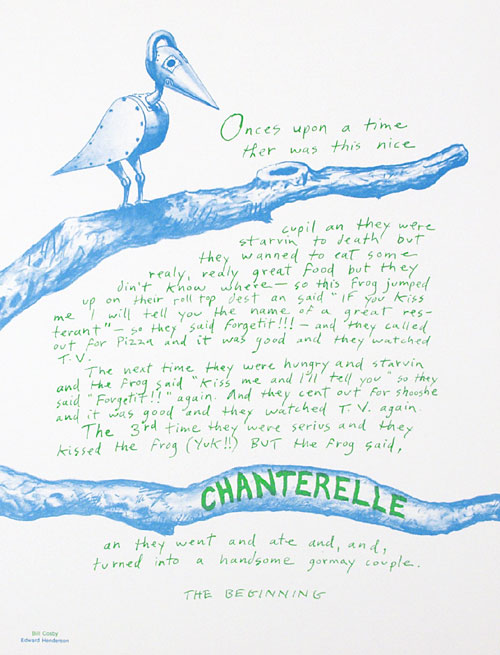 Onces upon a time
ther was this nice
cupil an they were
starvin to death but
they wanned to eat some
realy, realy great food but they
din't know where — so this frog jumped
up on their roll top dest an said "IF you Kiss
me I will tell you the name of a great res-
terant" — so they said forgetit!!! — and they called
out for Pizza and it was good and they watched
T.V.
The next time they were hungry and starvin
and the frog said "Kiss me and I'll tell you" so they
said "Forgetit!!" again. And they cent out for shooshe
and it was good and they watched T.V. again.
The 3rd time they were serius and they
Kissed the frog (Yuk!!) BUT the frog said,
CHANTERELLE
an they went and ate and, and,
turned into a handsome gormay couple.
THE BEGINNING
Bill Cosby
Edward Henderson